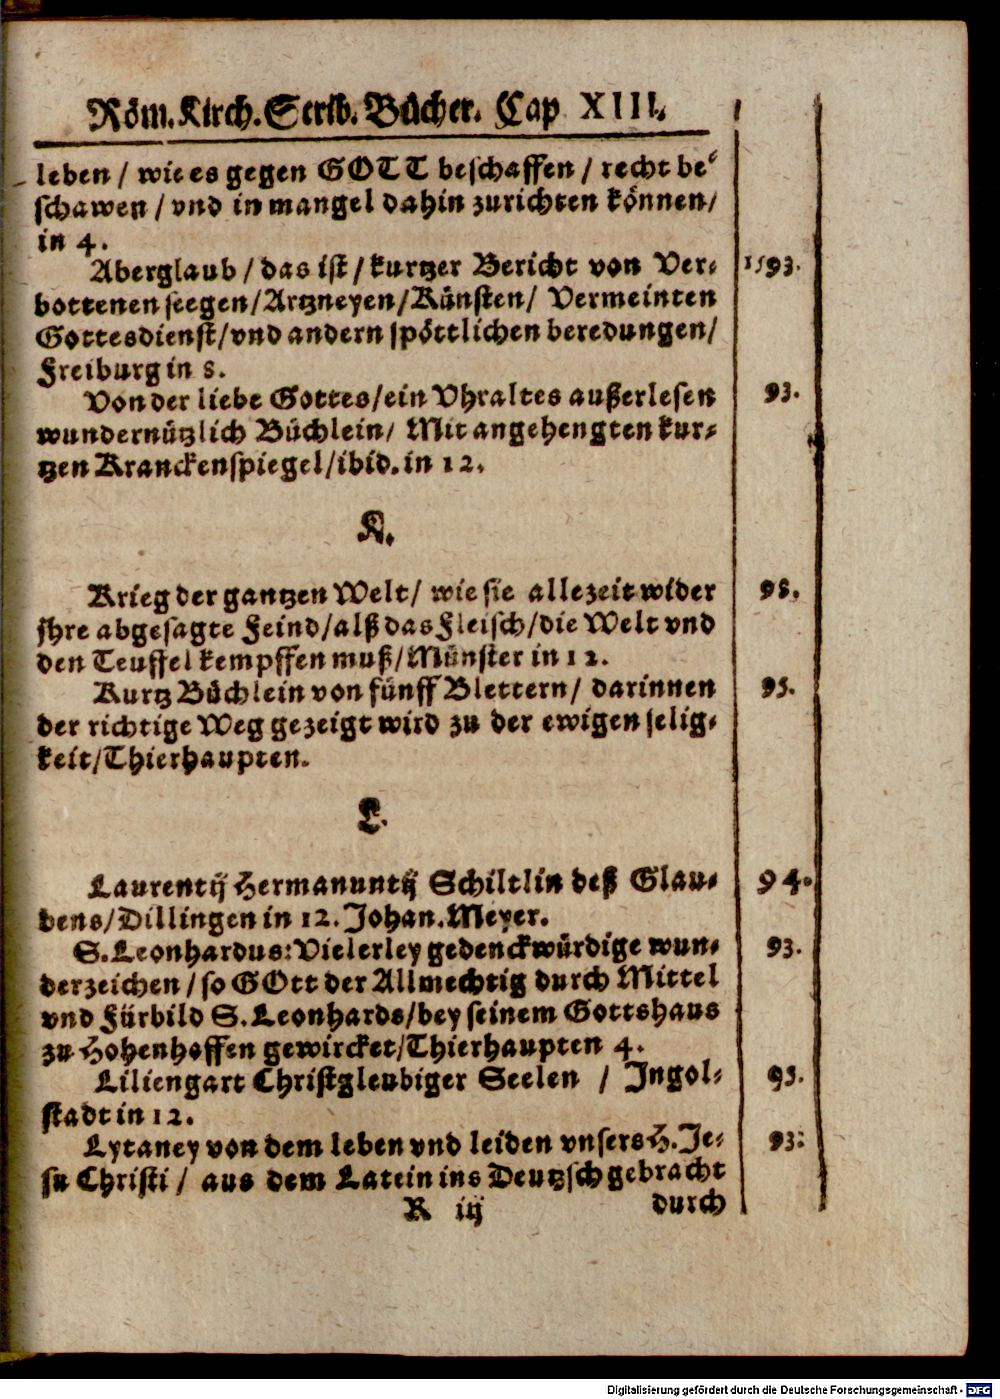 Röm. Kirch. Scrib. Bücher. Cap XIII.
leben / wie es gegen GOTT beschaffen / recht be-
schawen / vnd in mangel dahin zurichten können/
in 4.
Aberglaub / das ist / kurtzer Bericht von Ver- 1593.
bottenen seegen/Artzneyen/Künsten/ Vermeinten
Gottesdienst/vnd andern spöttlichen beredungen/
Freiburg in 8.
Von der liebe Gottes/ein Vhraltes außerlesen 93.
wundernützlich Büchlein/ Mit angehengten kur-
tzen Kranckenspiegel/ibid. in 12.
K.
Krieg der gantzen Welt/ wie sie allezeit wider 95.
jhre abgesagte Feind/alß das Fleisch/die Welt vnd
den Teuffel kempffen muß/Münster in 12.
Kurtz Büchlein von fünff Blettern/ darinnen 95.
der richtige Weg gezeigt wird zu der ewigen selig-
keit/Thierhaupten.
L.
Laurentij Hermanuntij Schiltlin deß Glau- 94.
bens/Dillingen in 12. Johan. Meyer.
S. Leonhardus: Vielerley gedenckwürdige wun- 93.
derzeichen / so GOtt der Allmechtig durch Mittel
vnd Fürbild S. Leonhards/bey seinem Gottshaus
zu Hohenhoffen gewircket/Thierhaupten 4.
Liliengart Christgleubiger Seelen / Jngol- 95.
stadt in 12.
Lytaney von dem leben vnd leiden vnsers H. Je- 93.
su Christi / aus dem Latein ins Deutzsch gebracht
K iij durch
Digitalisierung gefördert durch die Deutsche Forschungsgemeinschaft - DFG